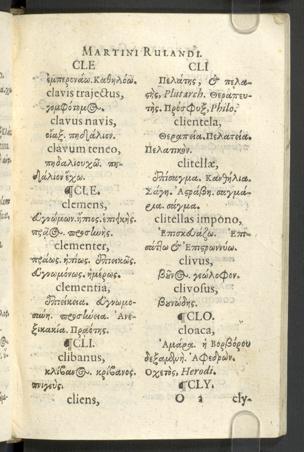 MARTINI RULANDI.
CLE
ἐμπερονάω. Καθηλόω.
clavis trajectus,
γομφότομ⊙.
clavus navis,
οἴαξ. πηδάλιον.
clavum teneo,
πηδαλιουχῶ. πη-
δάλιον ἔχω.
¶CLE.
clemens,
εὐγνώμων. ἤπιος. ἐπιεικής.
πρᾷ⊙.
clementer,
πράως. ἠπίως. ἐπιεικῶς.
εὐγνωμόνως. ἡμέρως.
clementia,
ἐπιείκεια. εὐγνωμο-
σύνη. Ανε-
ξικακία. Πραότης.
¶CLI.
clibanus,
κλίβαν⊙. κρίβανος.
πνιγεύς.
cliens,
CLI
Πελάτης, & πελα-
τὶς, Plutarch. Θεράπευ-
τής. Πρόσφυξ, Philo.
clientela,
Θεραπεία. Πελατεία.
Πελατικὸν.
clitellæ,
Επίσαγμα. Κανθήλια.
Σάγη. Αστράβη. σαγμά-
ρια. σάγμα.
clitellas impono,
Επισκευάζω. Επι-
σάττω & Επιστρωννύω.
clivus,
βουν⊙. γεώλοφον.
clivosus,
βουνώδης.
¶CLO.
cloaca,
Αμάρα. ἡ Βορβόρου
δεξαμενή. Αφεδρών.
Οχετὸς, Herodi.
¶CLY.
O 2 cly-